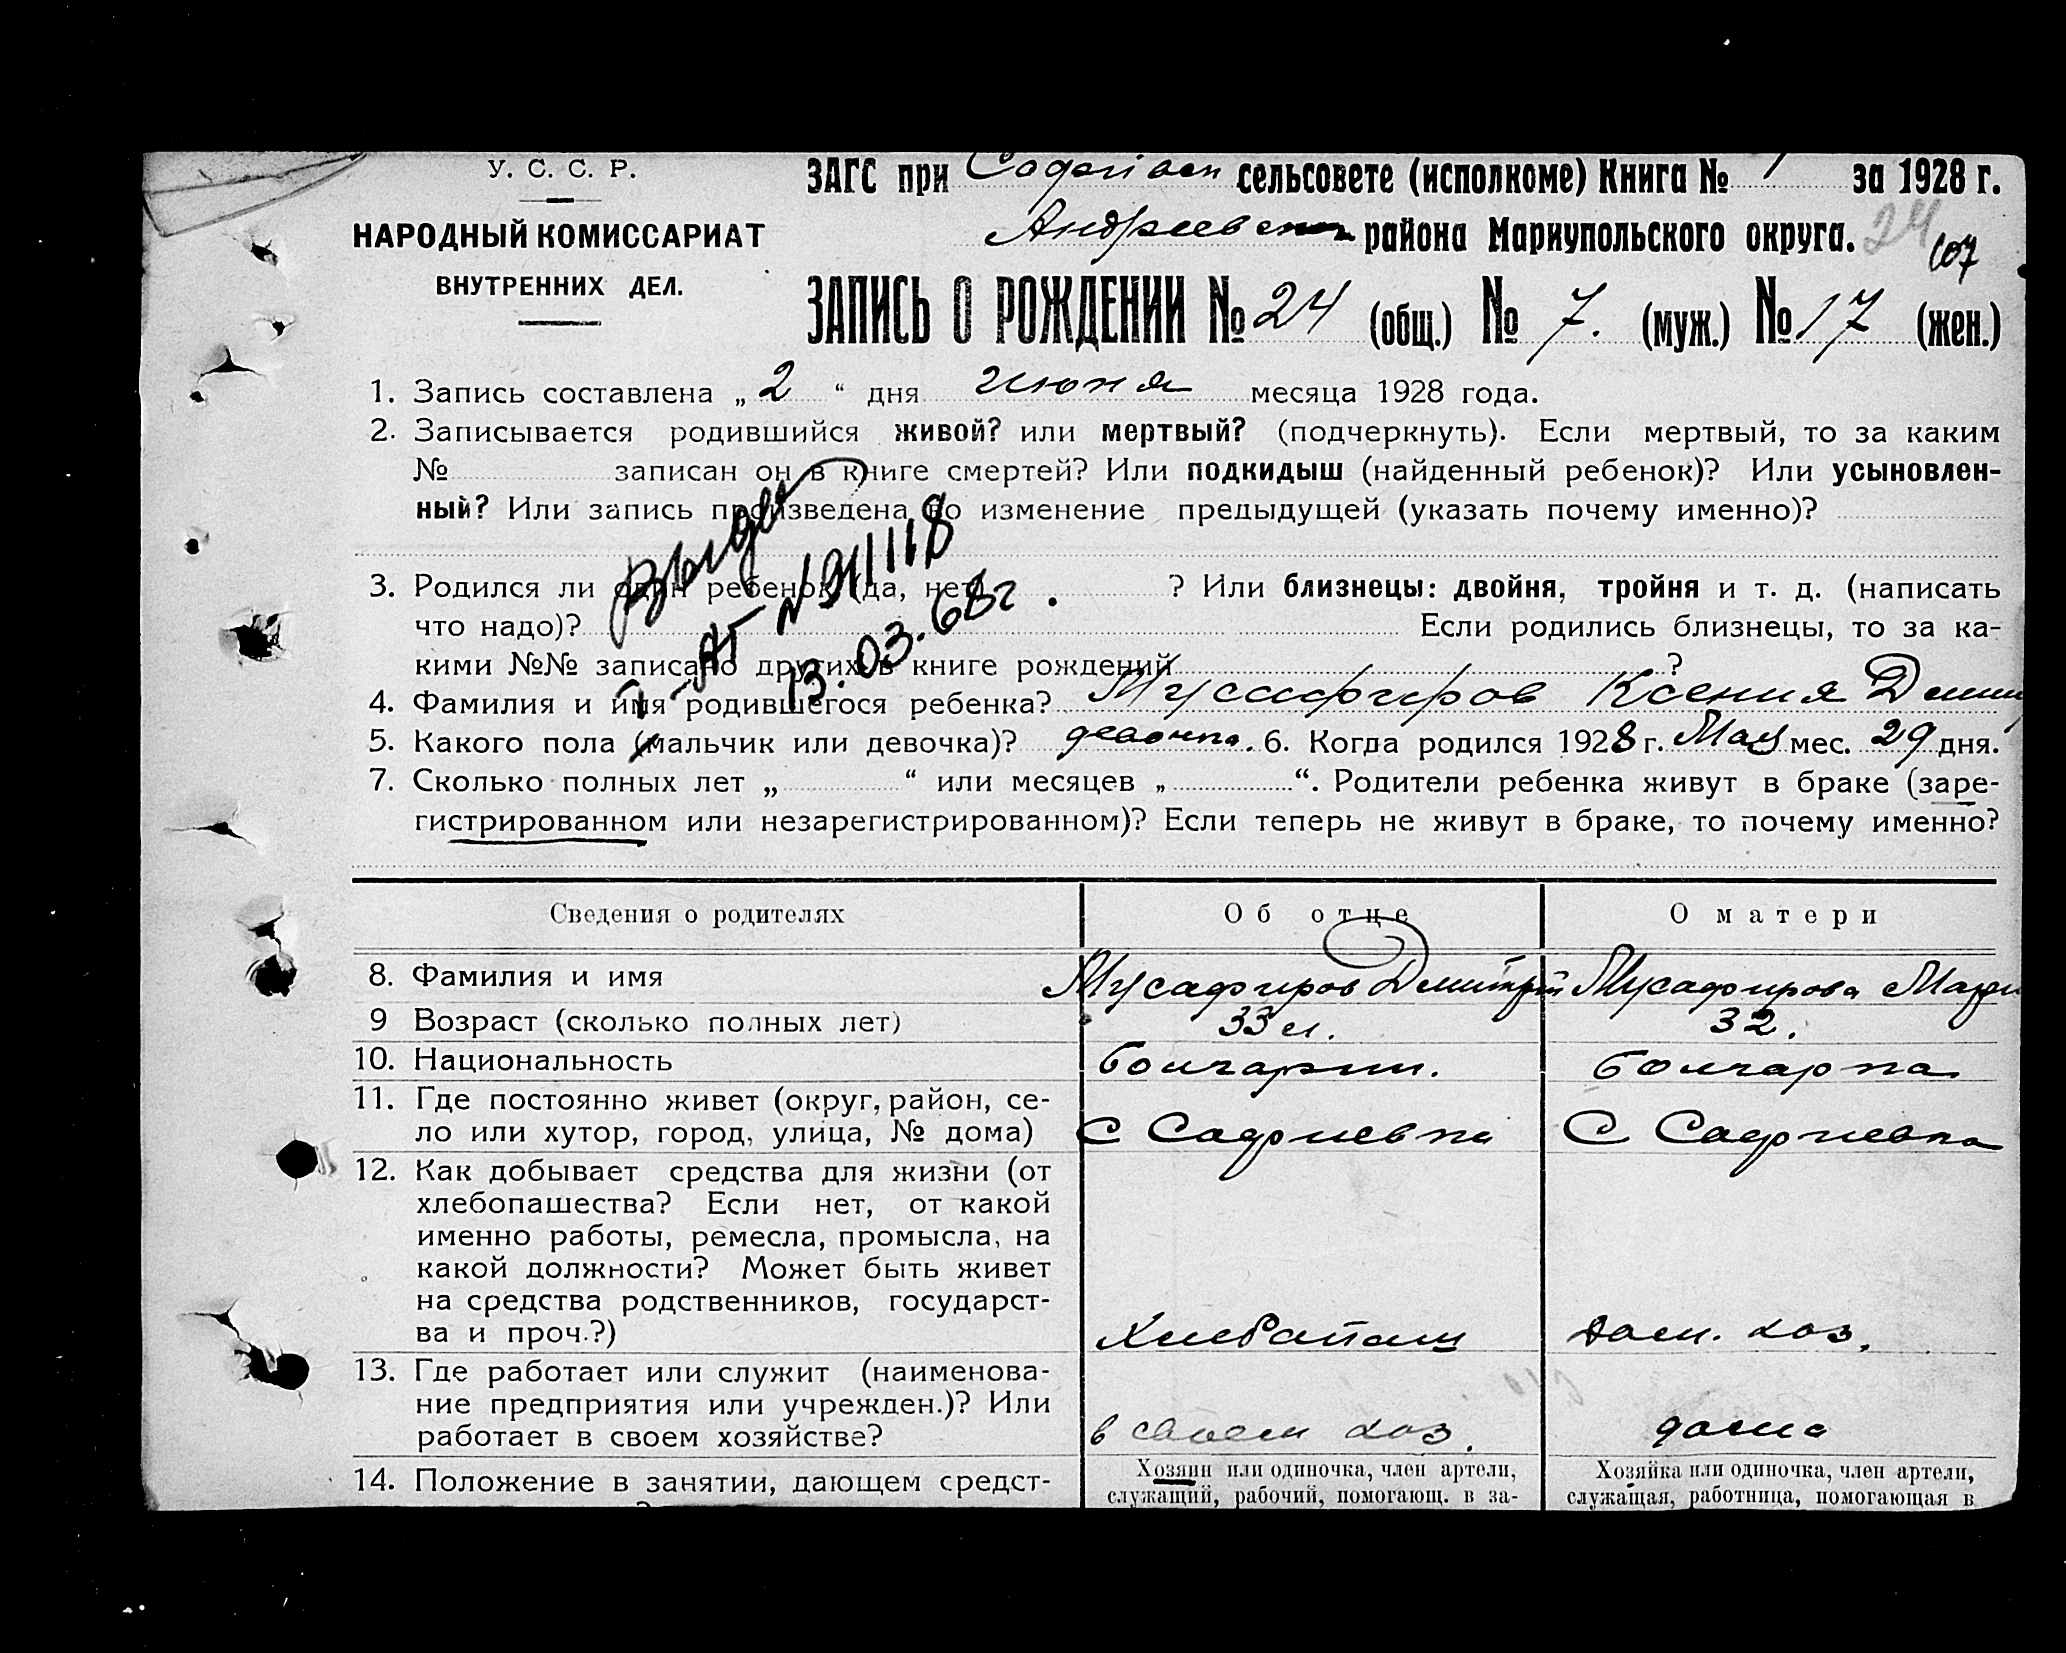 У. С. С. Р.
НАРОДНЫЙ КОМИССАРИАТ
ВНУТРЕННИХ ДЕЛ.
ЗАГС при сельсовете (исполкоме) Книга № 1 за 1928 г.
Андреевского района Мариупольского округа. 24
107
ЗАПИСЬ О РОЖДЕНИИ № 24 (общ.) № 7. (муж.) № 17 (жен.)
1. Запись составлена „ 2 “ дня июня месяца 1928 года.
2. Записывается родившийся живой? или мертвый? (подчеркнуть). Если мертвый, то за каким
№ записан он в книге смертей? Или подкидыш (найденный ребенок)? Или усыновлен-
ный? Или запись произведена во изменение предыдущей (указать почему именно)?
3. Родился ли один ребенок (да, нет) ? Или близнецы: двойня, тройня и т. д. (написать
что надо)? Если родились близнецы, то за ка-
кими №№ записано других в книге рождений ?
4. Фамилия и имя родившегося ребенка? Мусафиров Ксения Дмит
5. Какого пола (мальчик или девочка)? девочка. 6. Когда родился 1928 г. Мая мес. 29 дня.
7. Сколько полных лет „ “ или месяцев „ “. Родители ребенка живут в браке (заре-
гистрированном или незарегистрированном)? Если теперь не живут в браке, то почему именно?
13.03.68г
Сведения о родителях Об отце О матери
8. Фамилия и имя Мусафиров Дмитрий Мусафирова Мария
9 Возраст (сколько полных лет) 33 л. 32.
10. Национальность болгарин. болгарка
11. Где постоянно живет (округ, район, се-
ло или хутор, город, улица, № дома) С Садриевка С Садриевка
12. Как добывает средства для жизни (от
хлебопашества? Если нет, от какой
именно работы, ремесла, промысла, на
какой должности? Может быть живет
на средства родственников, государст-
ва и проч.?) Хлебопаш дом. хоз.
13. Где работает или служит (наименова-
ние предприятия или учрежден.)? Или
работает в своем хозяйстве? в своем хоз. дома
14. Положение в занятии, дающем средст- Хозяин или одиночка, член артели, Хозяйка или одиночка, член артели,
служащий, рабочий, помогающ. в за- служащая, работница, помогающая в